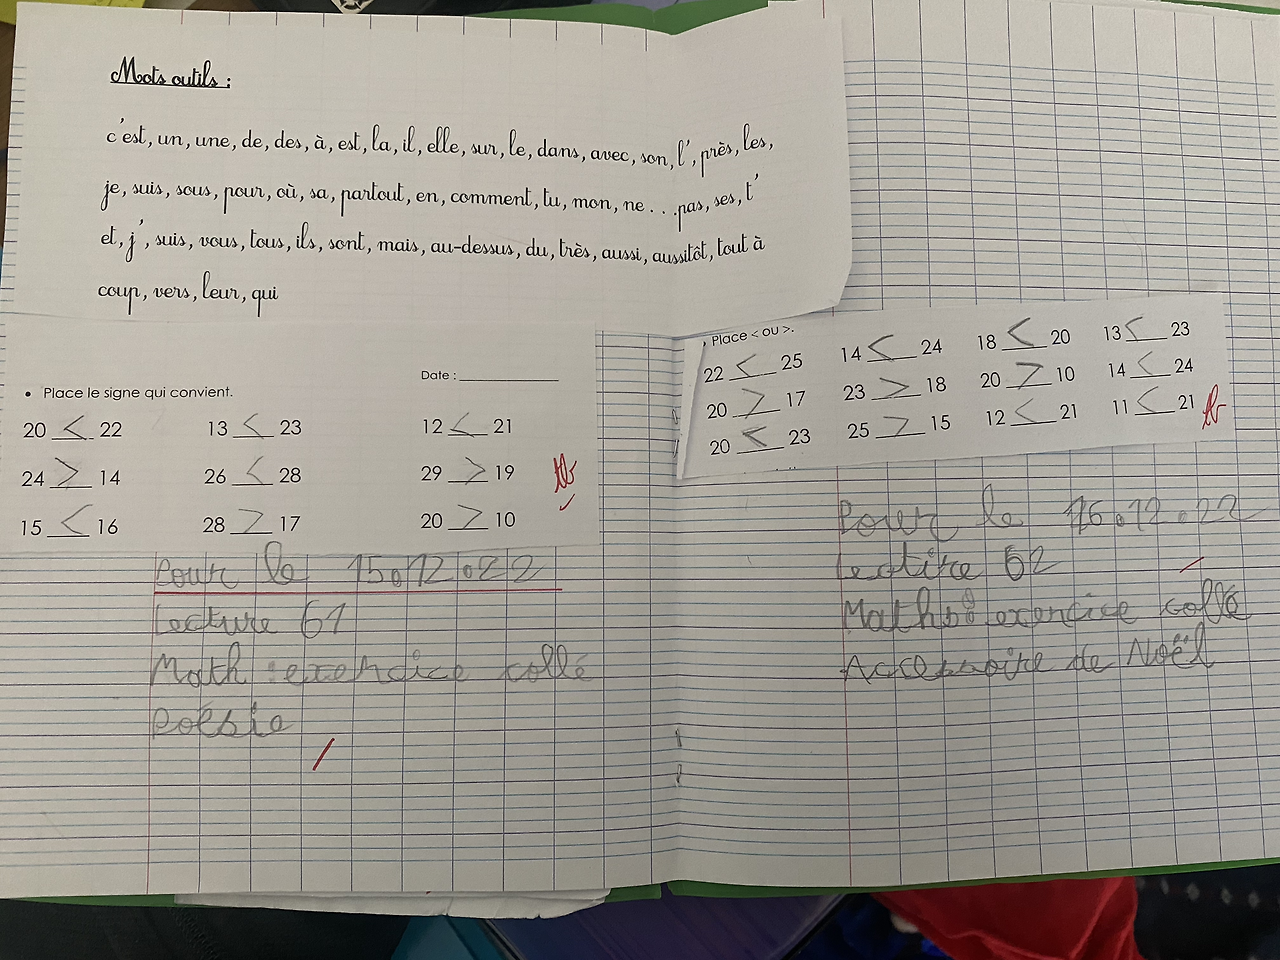 Mots outils :
c'est, un, une, de, des, à, est, la, il, elle, sur, le, dans, avec, son, l', près, les,
je, suis, sous, pour, où, sa, partout, en, comment, tu, mon, ne . . . pas, ses, t'
et, j', suis, vous, tous, ils, sont, mais, au-dessus, du, très, aussi, aussitôt, tout à
coup, vers, leur, qui
Date : ____________
• Place le signe qui convient.
20 < 22 13 < 23 12 < 21
24 > 14 26 < 28 29 > 19
15 < 16 28 > 17 20 > 10
tb
Pour le 15.12.22
Lecture 61
Math : exercice collé
Poésie
Place < ou >.
22 < 25 14 < 24 18 < 20 13 < 23
20 > 17 23 > 18 20 > 10 14 < 24
20 < 23 25 > 15 12 < 21 11 < 21
tb
Pour le 16.12.22
Lectire 62
Math : exercice collé
Accessoire de Noël